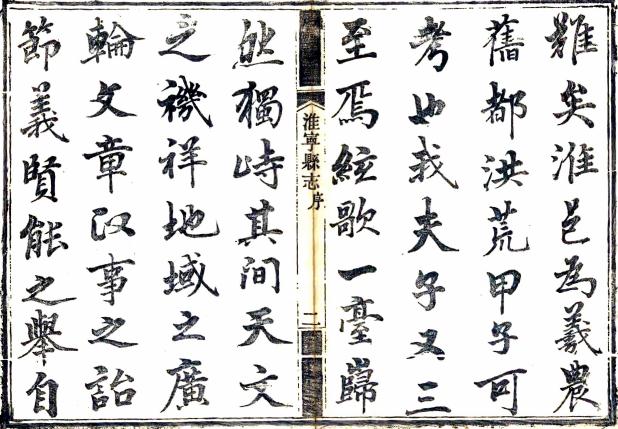 難矣淮邑為羲農
舊都洪荒甲子可
考也我夫子又三
至焉絃歌一臺巋
淮寧縣志序
二
然獨峙其間天文
之禨祥地域之廣
輪文章政事之詒
節義賢能之舉自